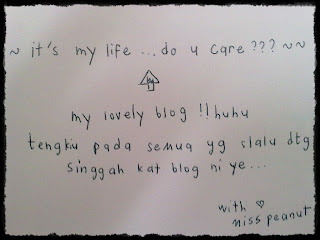 ~ it's my life ... do u care ??? ~~
my lovely blog !! huhu
tengkiu pada semua yg slalu dtg
singgah kat blog ni ye...
with ♡
miss peanut